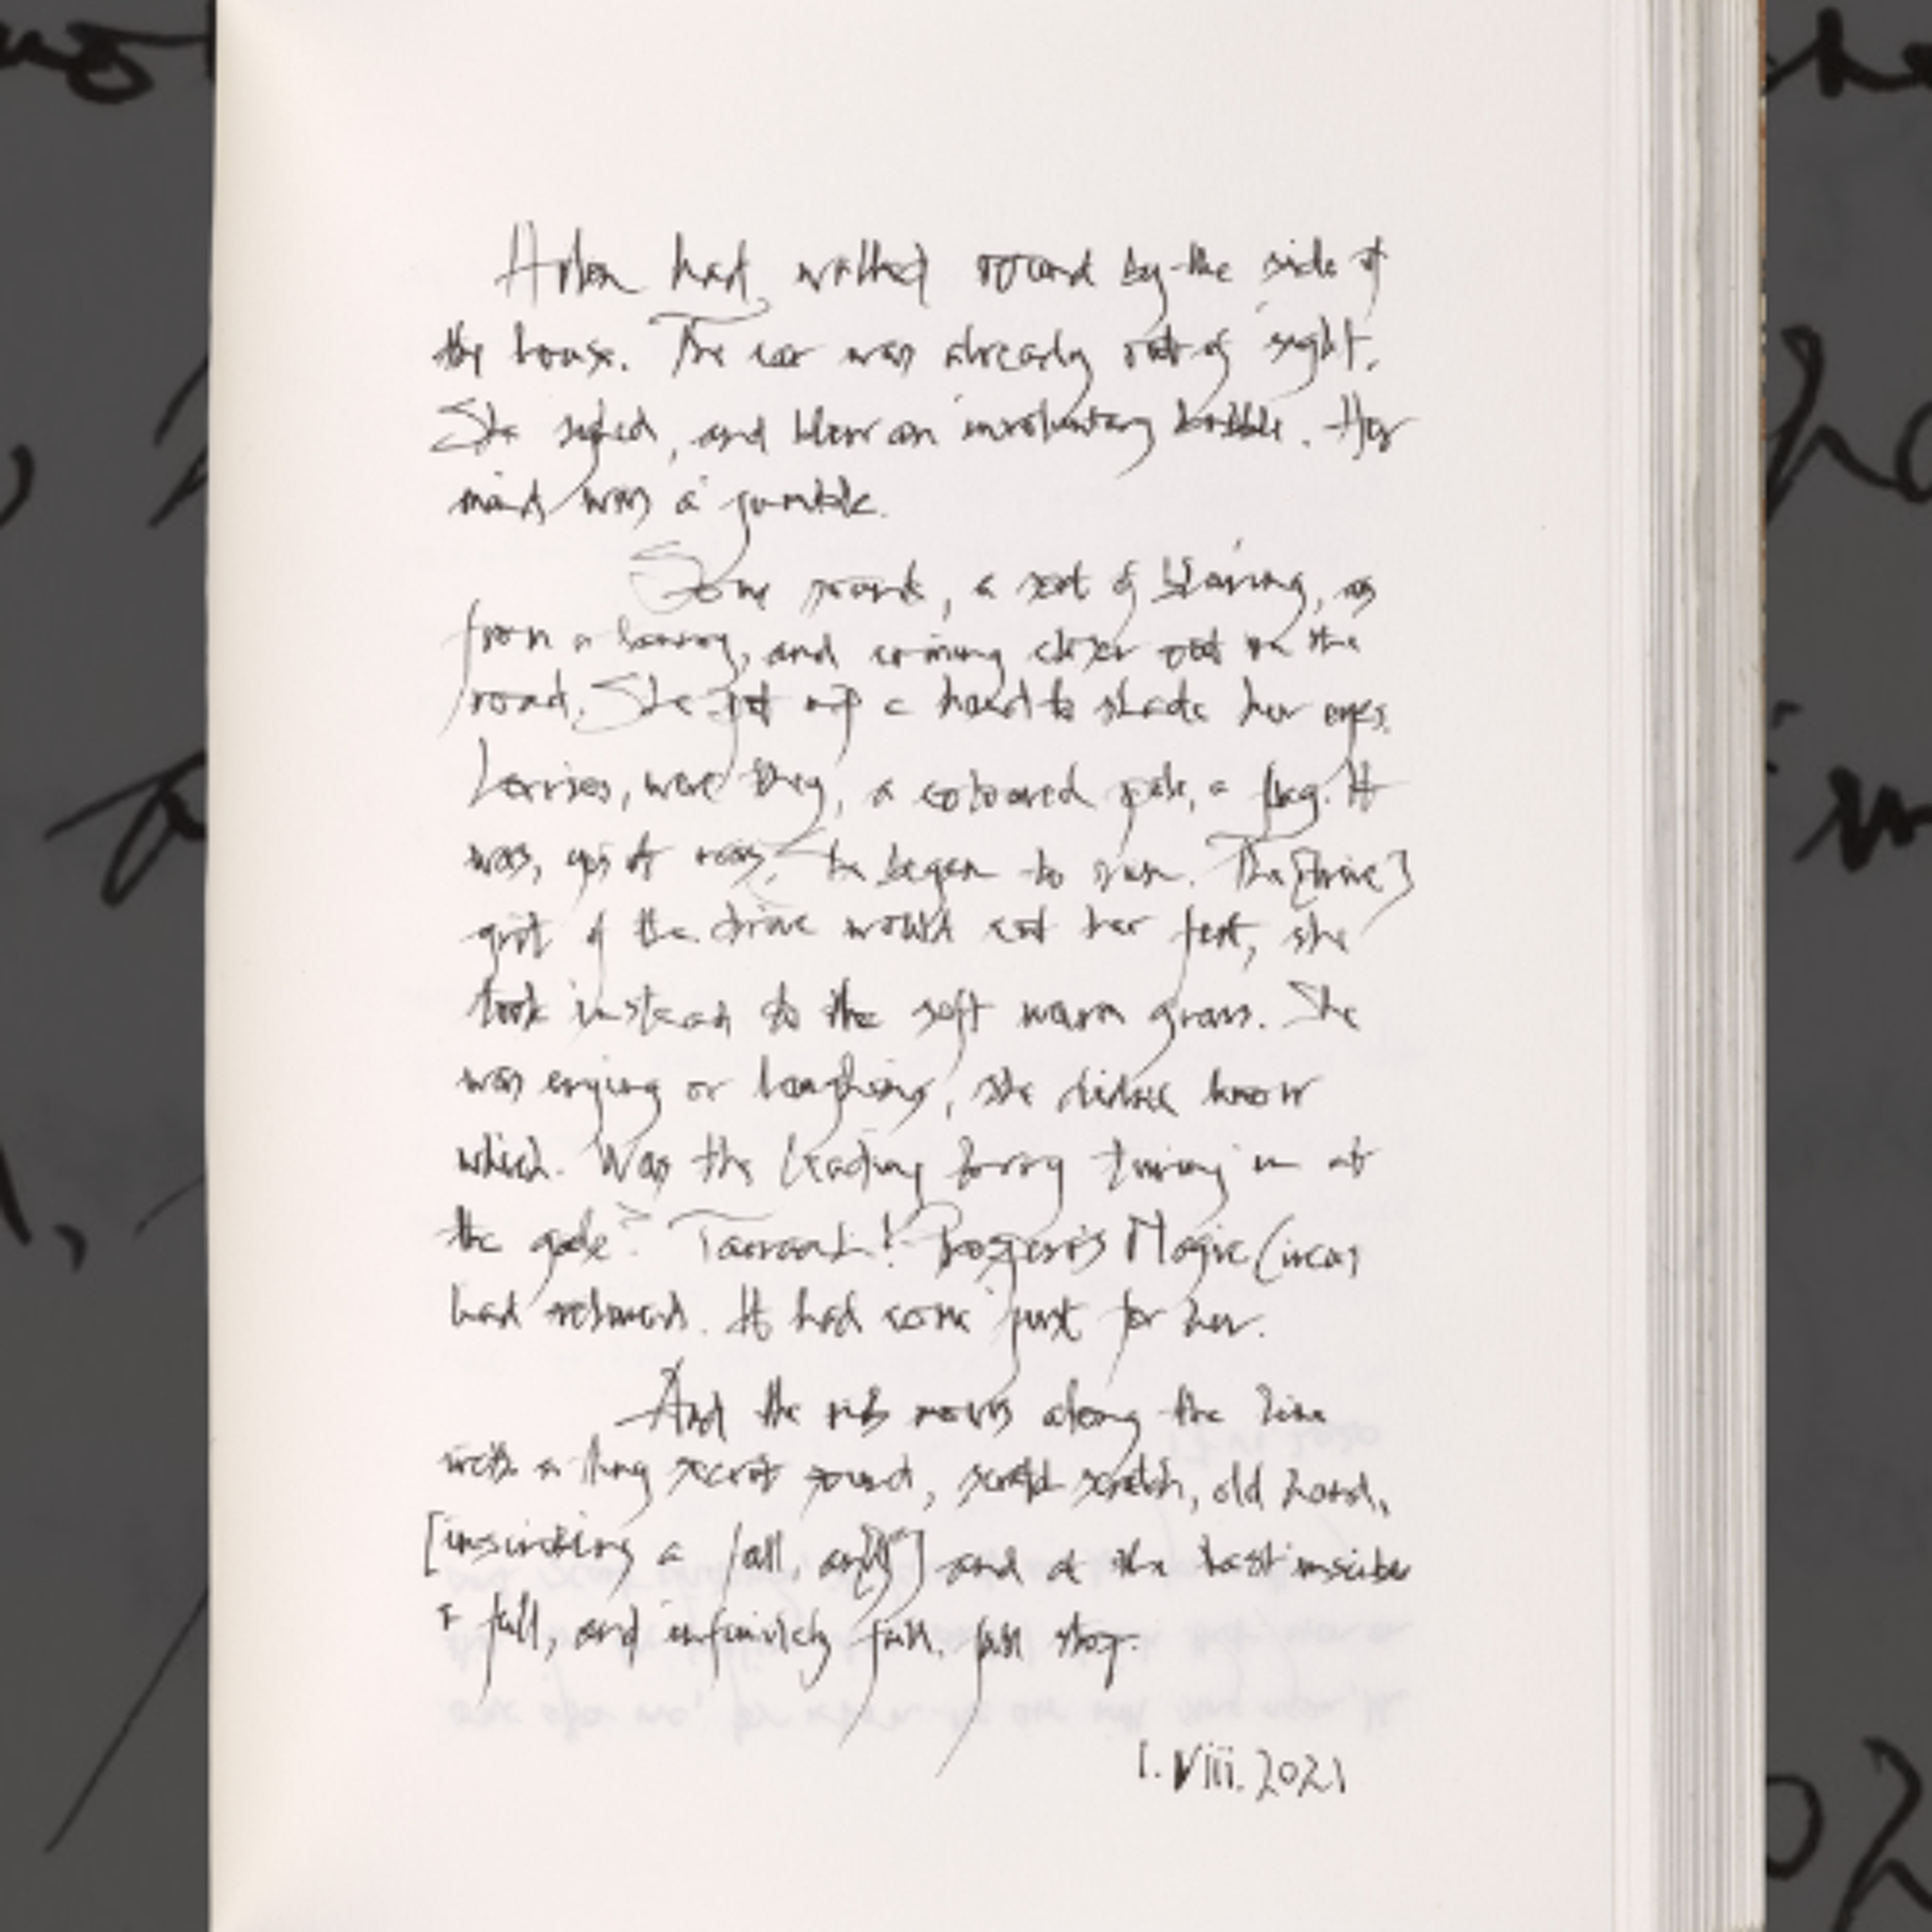 Helen had walked round by the side of
the house. The car was already out of sight.
She sighed, and blew an involuntary bubble. Her
mind was a jumble.
Some sounds, a sort of blaring, as
from a and coming closer out on the
road. She put up a hand to shade her eyes.
Lorries, were they, a coloured pole, a flag. It
was, yes it was. She began to run. The [drive]
grit of the drive would cut her feet, she
took instead to the soft warm grass. She
was crying or laughing, she didnt know
which. Was the leading lorry turning in at
the gate? Taaraah! Prospero's Magic Circus
had returned. It had come just for her.
And the nib moves along the line
with a tiny secret sound, scratch scratch, old hand,
[inscribing a full, and] and at the last inscribes
a full, and infinitely full, full stop.
1.Viii.2021